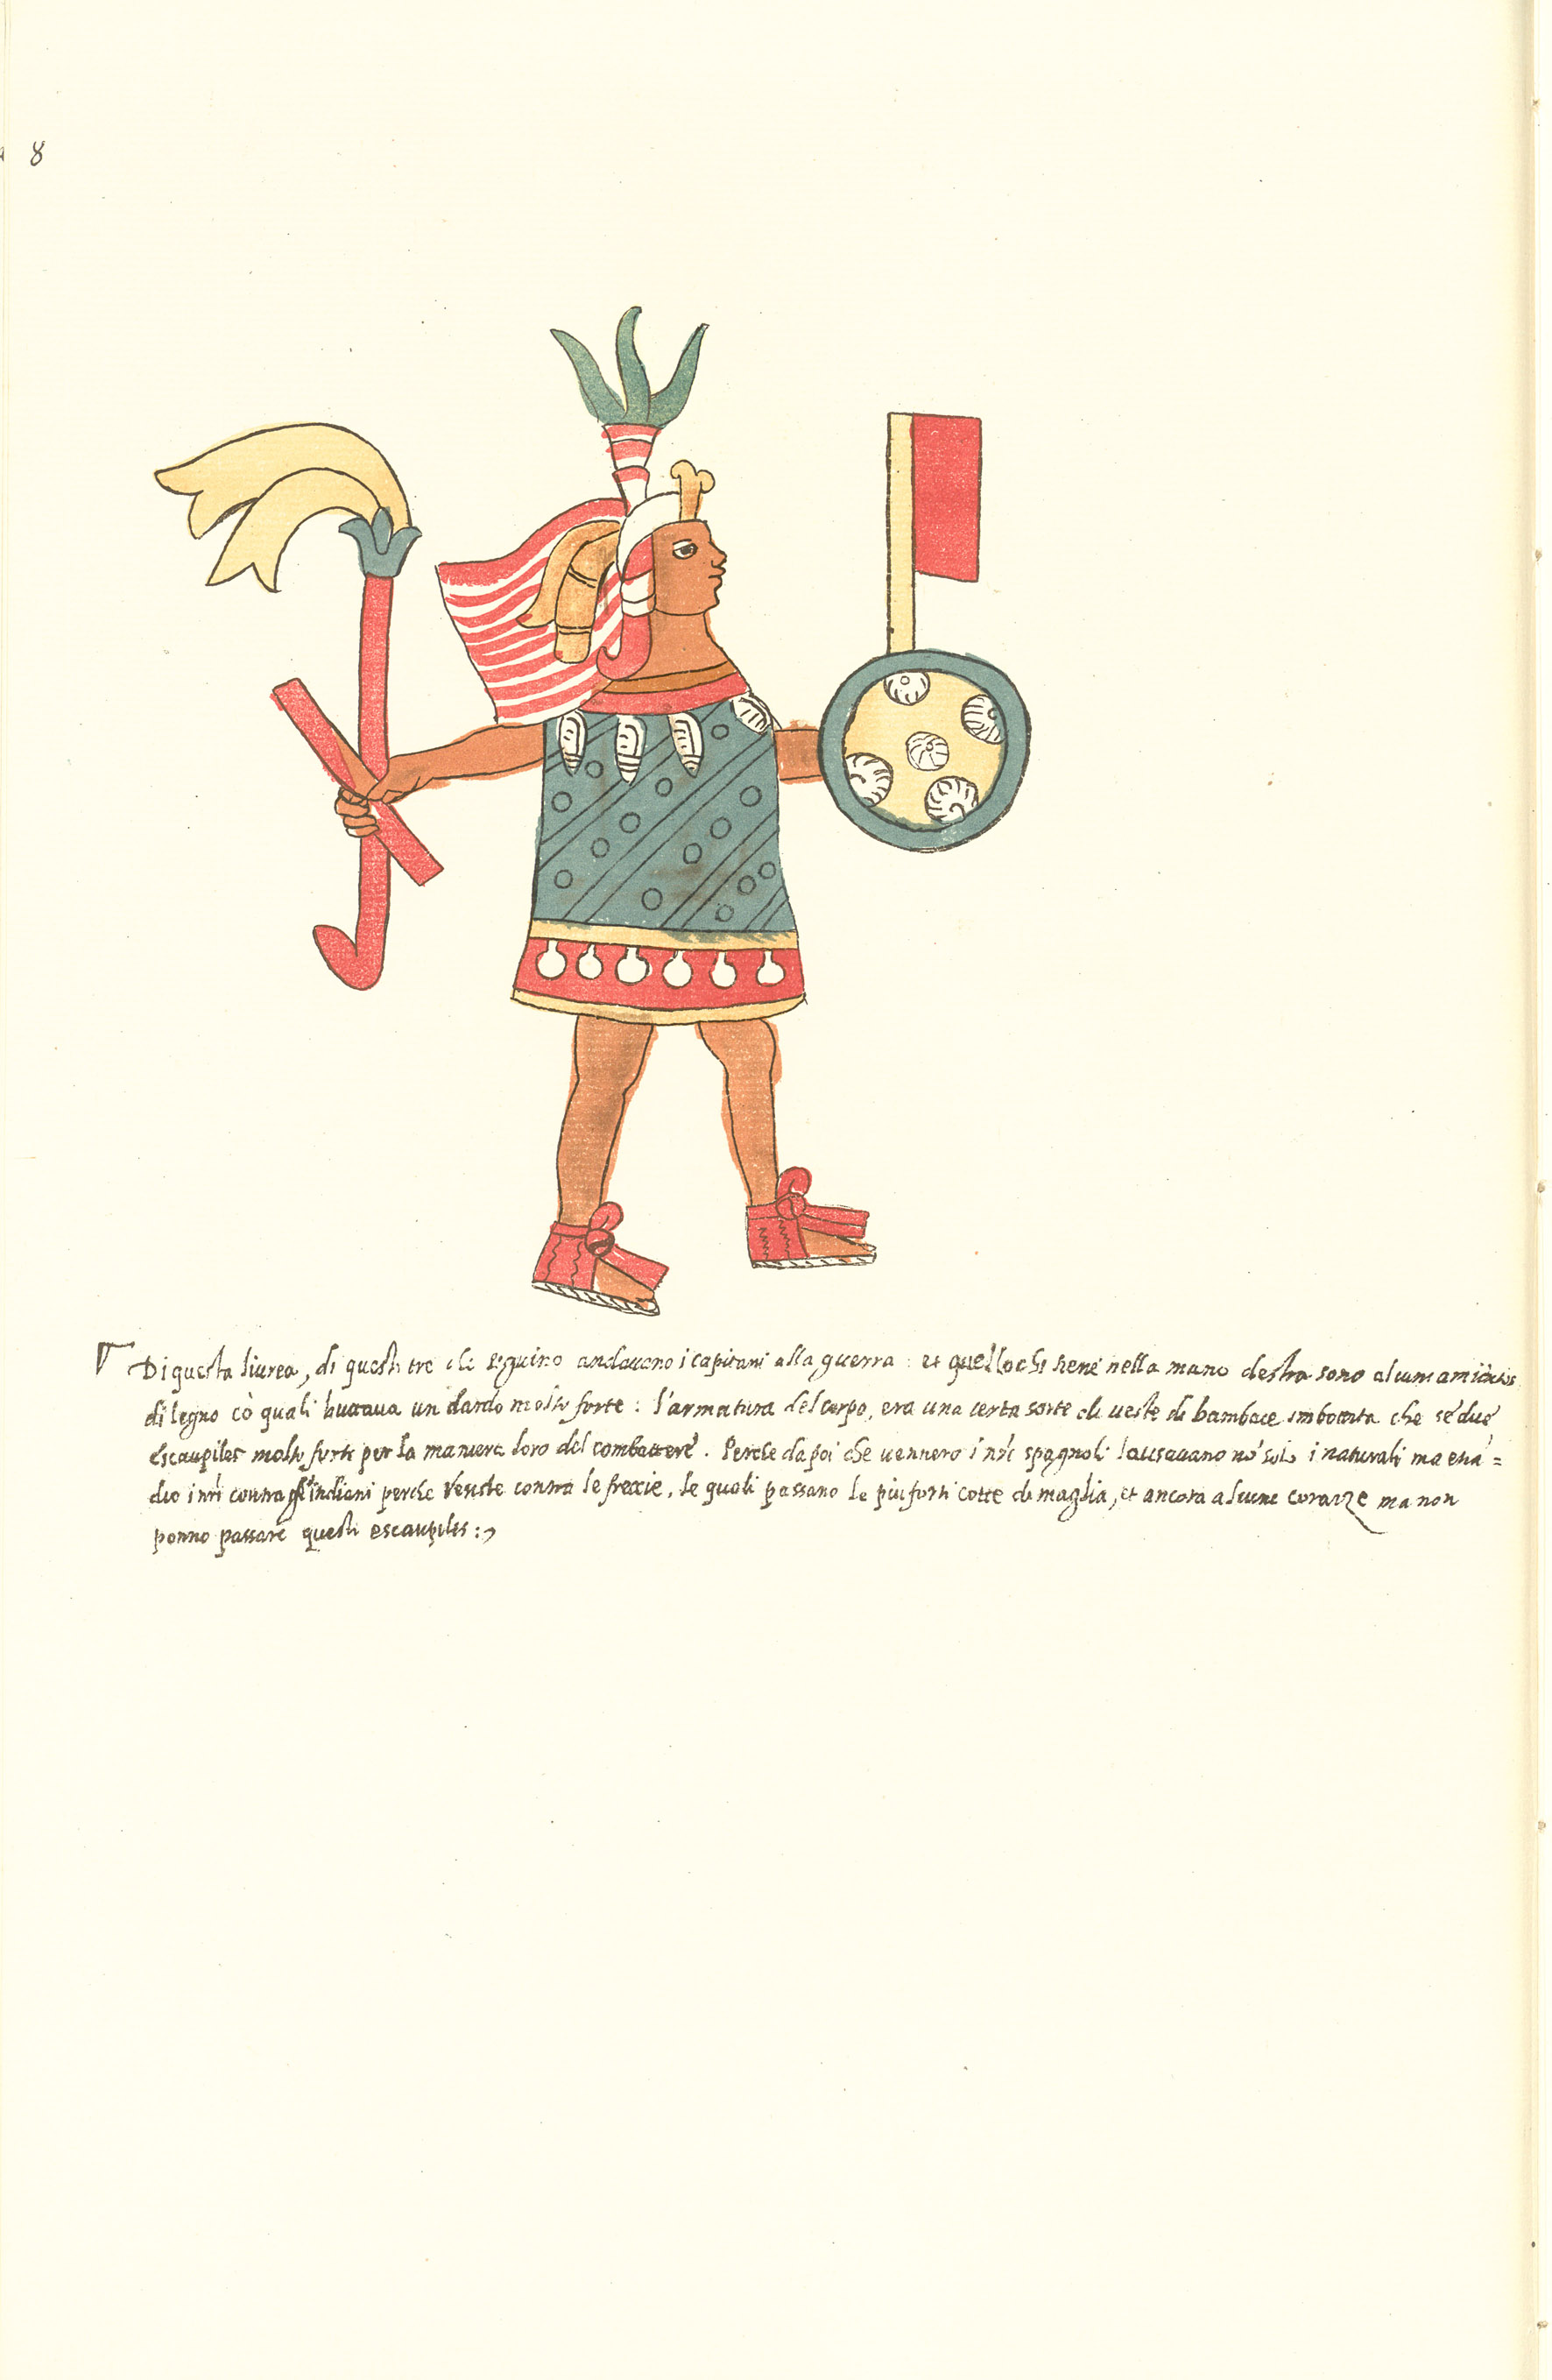 8
Di questa liurea, di questi tre che seguino andauano i capitani alla guerra: et quello chi tiene nella mano destra sono alcuni
di legno cō quali buttaua un dardo molto forte: l'armatura del corpo, era una certa sorte di ueste di bambace imbottita che se due
escaupiles molto forti per la maniera loro del combattere. Perche dapoi che uennero i nr̃i spagnoli l'ausauano nō solo i naturali ma etiā=
dio i nr̃i contra gl'indiani perche resiste contra le frezzie, le quali passano le piu forti cotte di maglia, et ancora alcune corazze ma non
ponno passare questi escaupiles:,